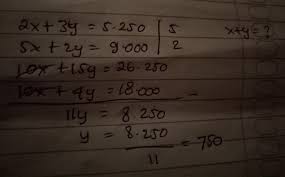 2x + 3y = 5.250 | 5 x+y = ?
5x + 2y = 9.000 | 2
10x + 15y = 26.250
10x + 4y = 18.000 -
11y = 8.250
y = 8.250
11
= 750